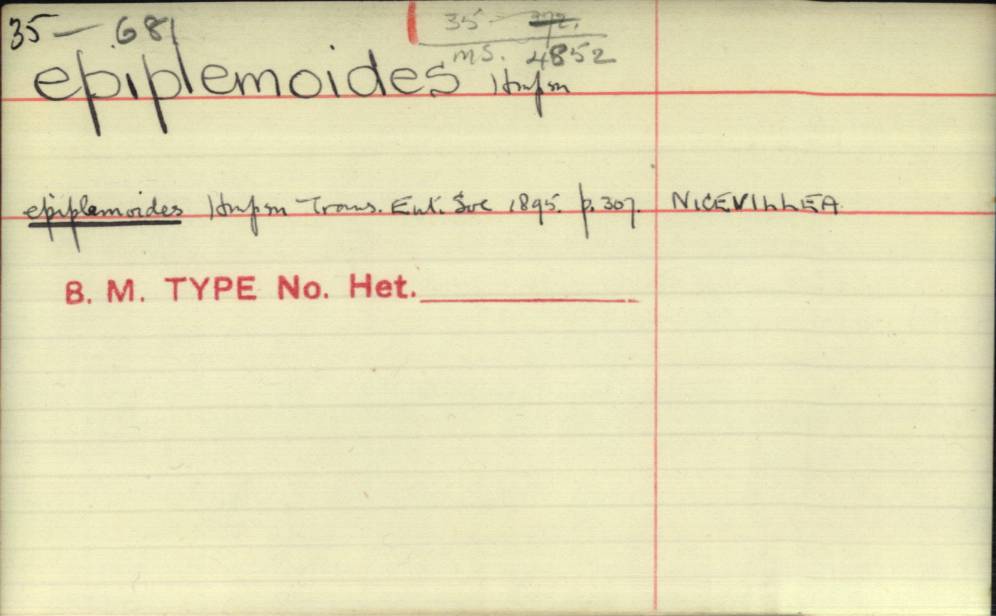 35 — 681
35 — 372.
MS. 4852
epiplemoides Hmpsn
epiplemoides Hmpsn Trans. Ent. Soc 1895. p. 307. NICEVILLEA
B. M. TYPE No. Het.